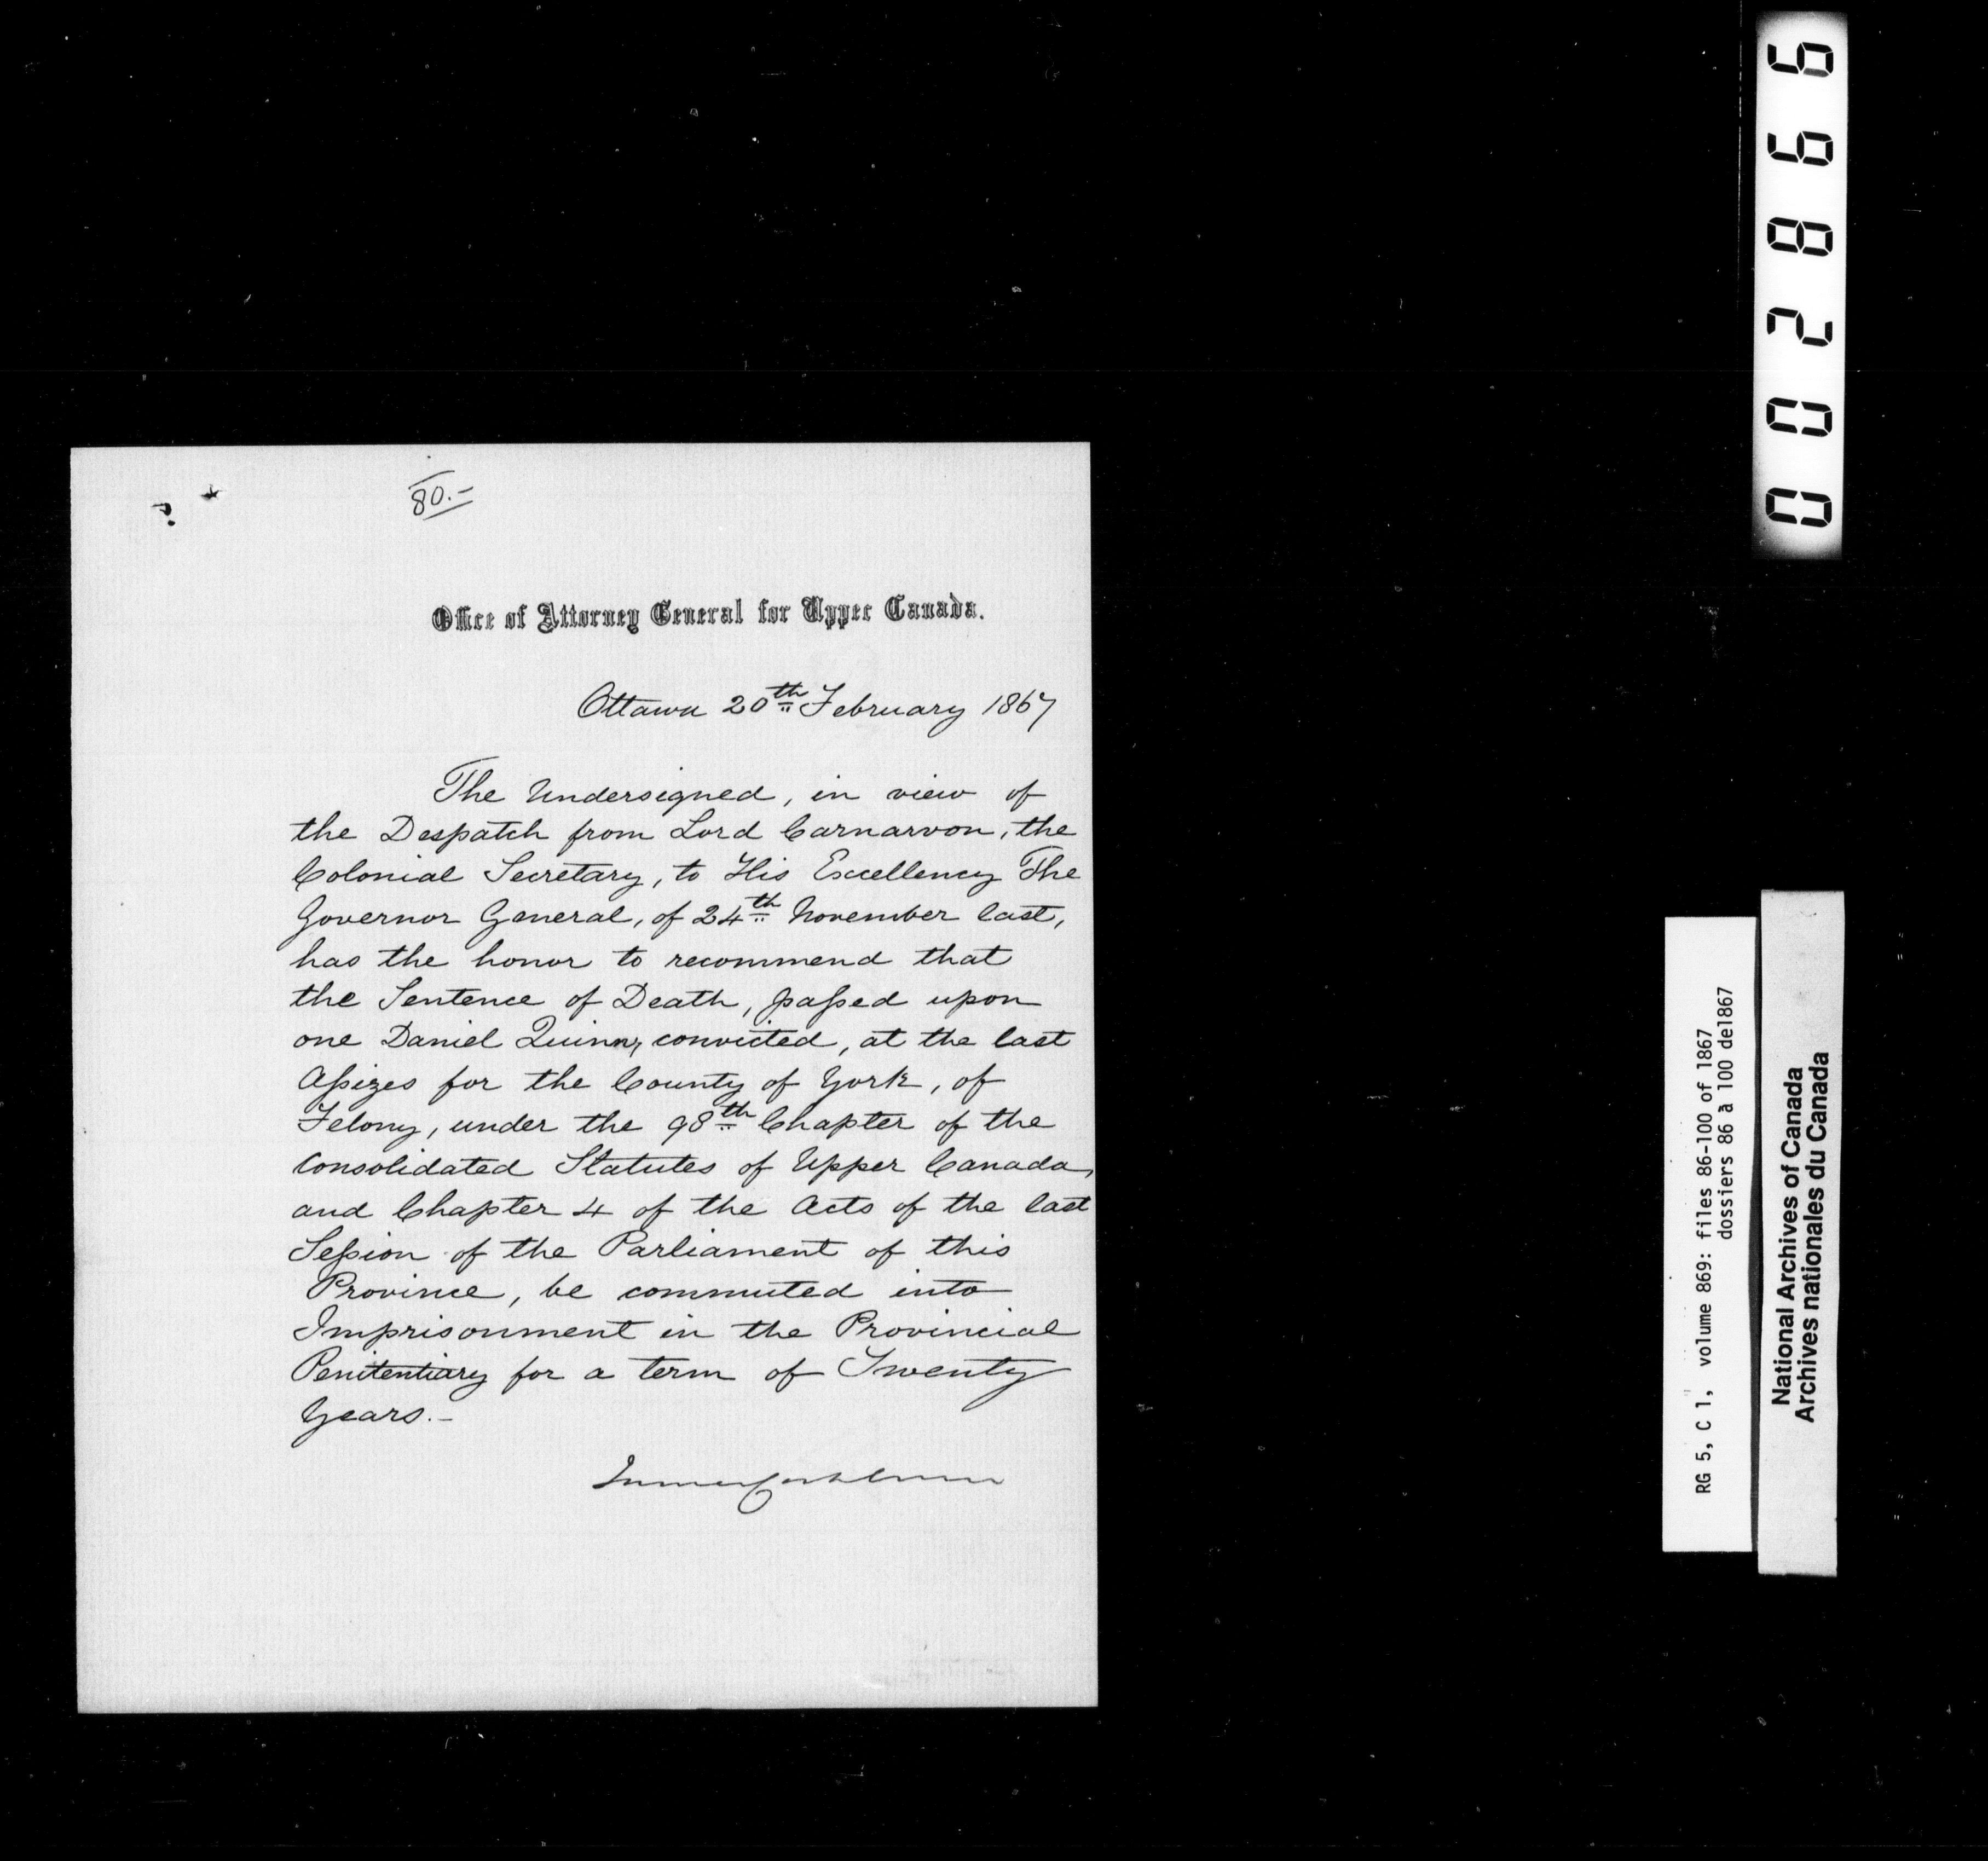 80.-
Office of Attorney General for Upper Canada.
Ottawa 20th February 1867
The Undersigned, in view of
the Despatch from Lord Carnarvon, the
Colonial Secretary, to His Excellency The
Governor General, of 24th November last,
has the honor to recommend that
the Sentence of Death, passed upon
one Daniel Quinn, convicted, at the last
Assizes for the County of York, of
Felony, under the 98th Chapter of the
Consolidated Statutes of Upper Canada,
and Chapter 4 of the Acts of the last
Session of the Parliament of this
Province, be commuted into
Imprisonment in the Provincial
Penitentiary for a term of Twenty
Years.-
002866
RG 5, C 1, volume 869: files 86-100 of 1867
dossiers 86 à 100 de1867
National Archives of Canada
Archives nationales du Canada